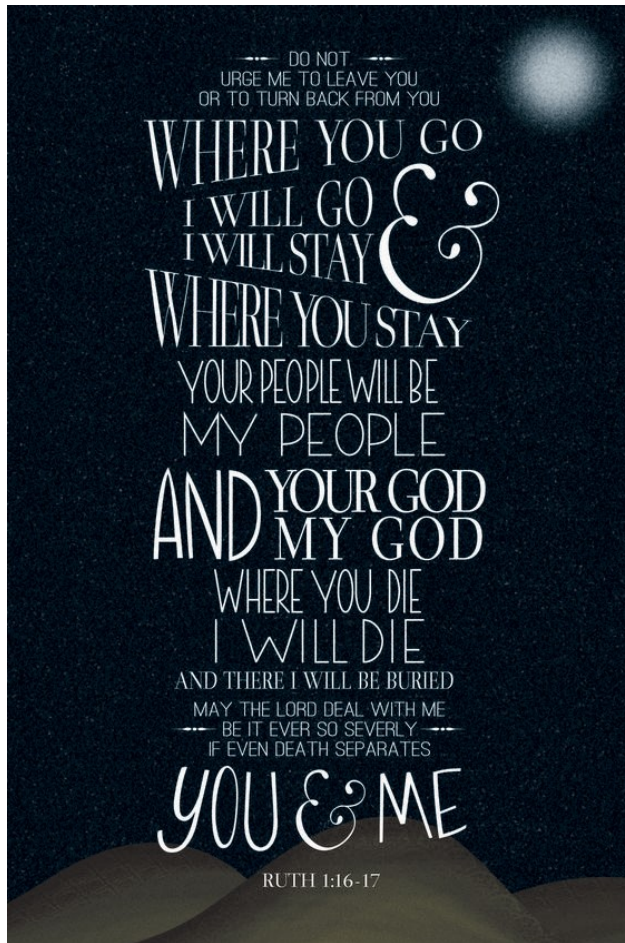 DO NOT
URGE ME TO LEAVE YOU
OR TO TURN BACK FROM YOU
WHERE YOU GO
I WILL GO &
I WILL STAY
WHERE YOU STAY
YOUR PEOPLE WILL BE
MY PEOPLE
AND YOUR GOD
MY GOD
WHERE YOU DIE
I WILL DIE
AND THERE I WILL BE BURIED
MAY THE LORD DEAL WITH ME
BE IT EVER SO SEVERLY
IF EVEN DEATH SEPARATES
YOU & ME
RUTH 1:16-17